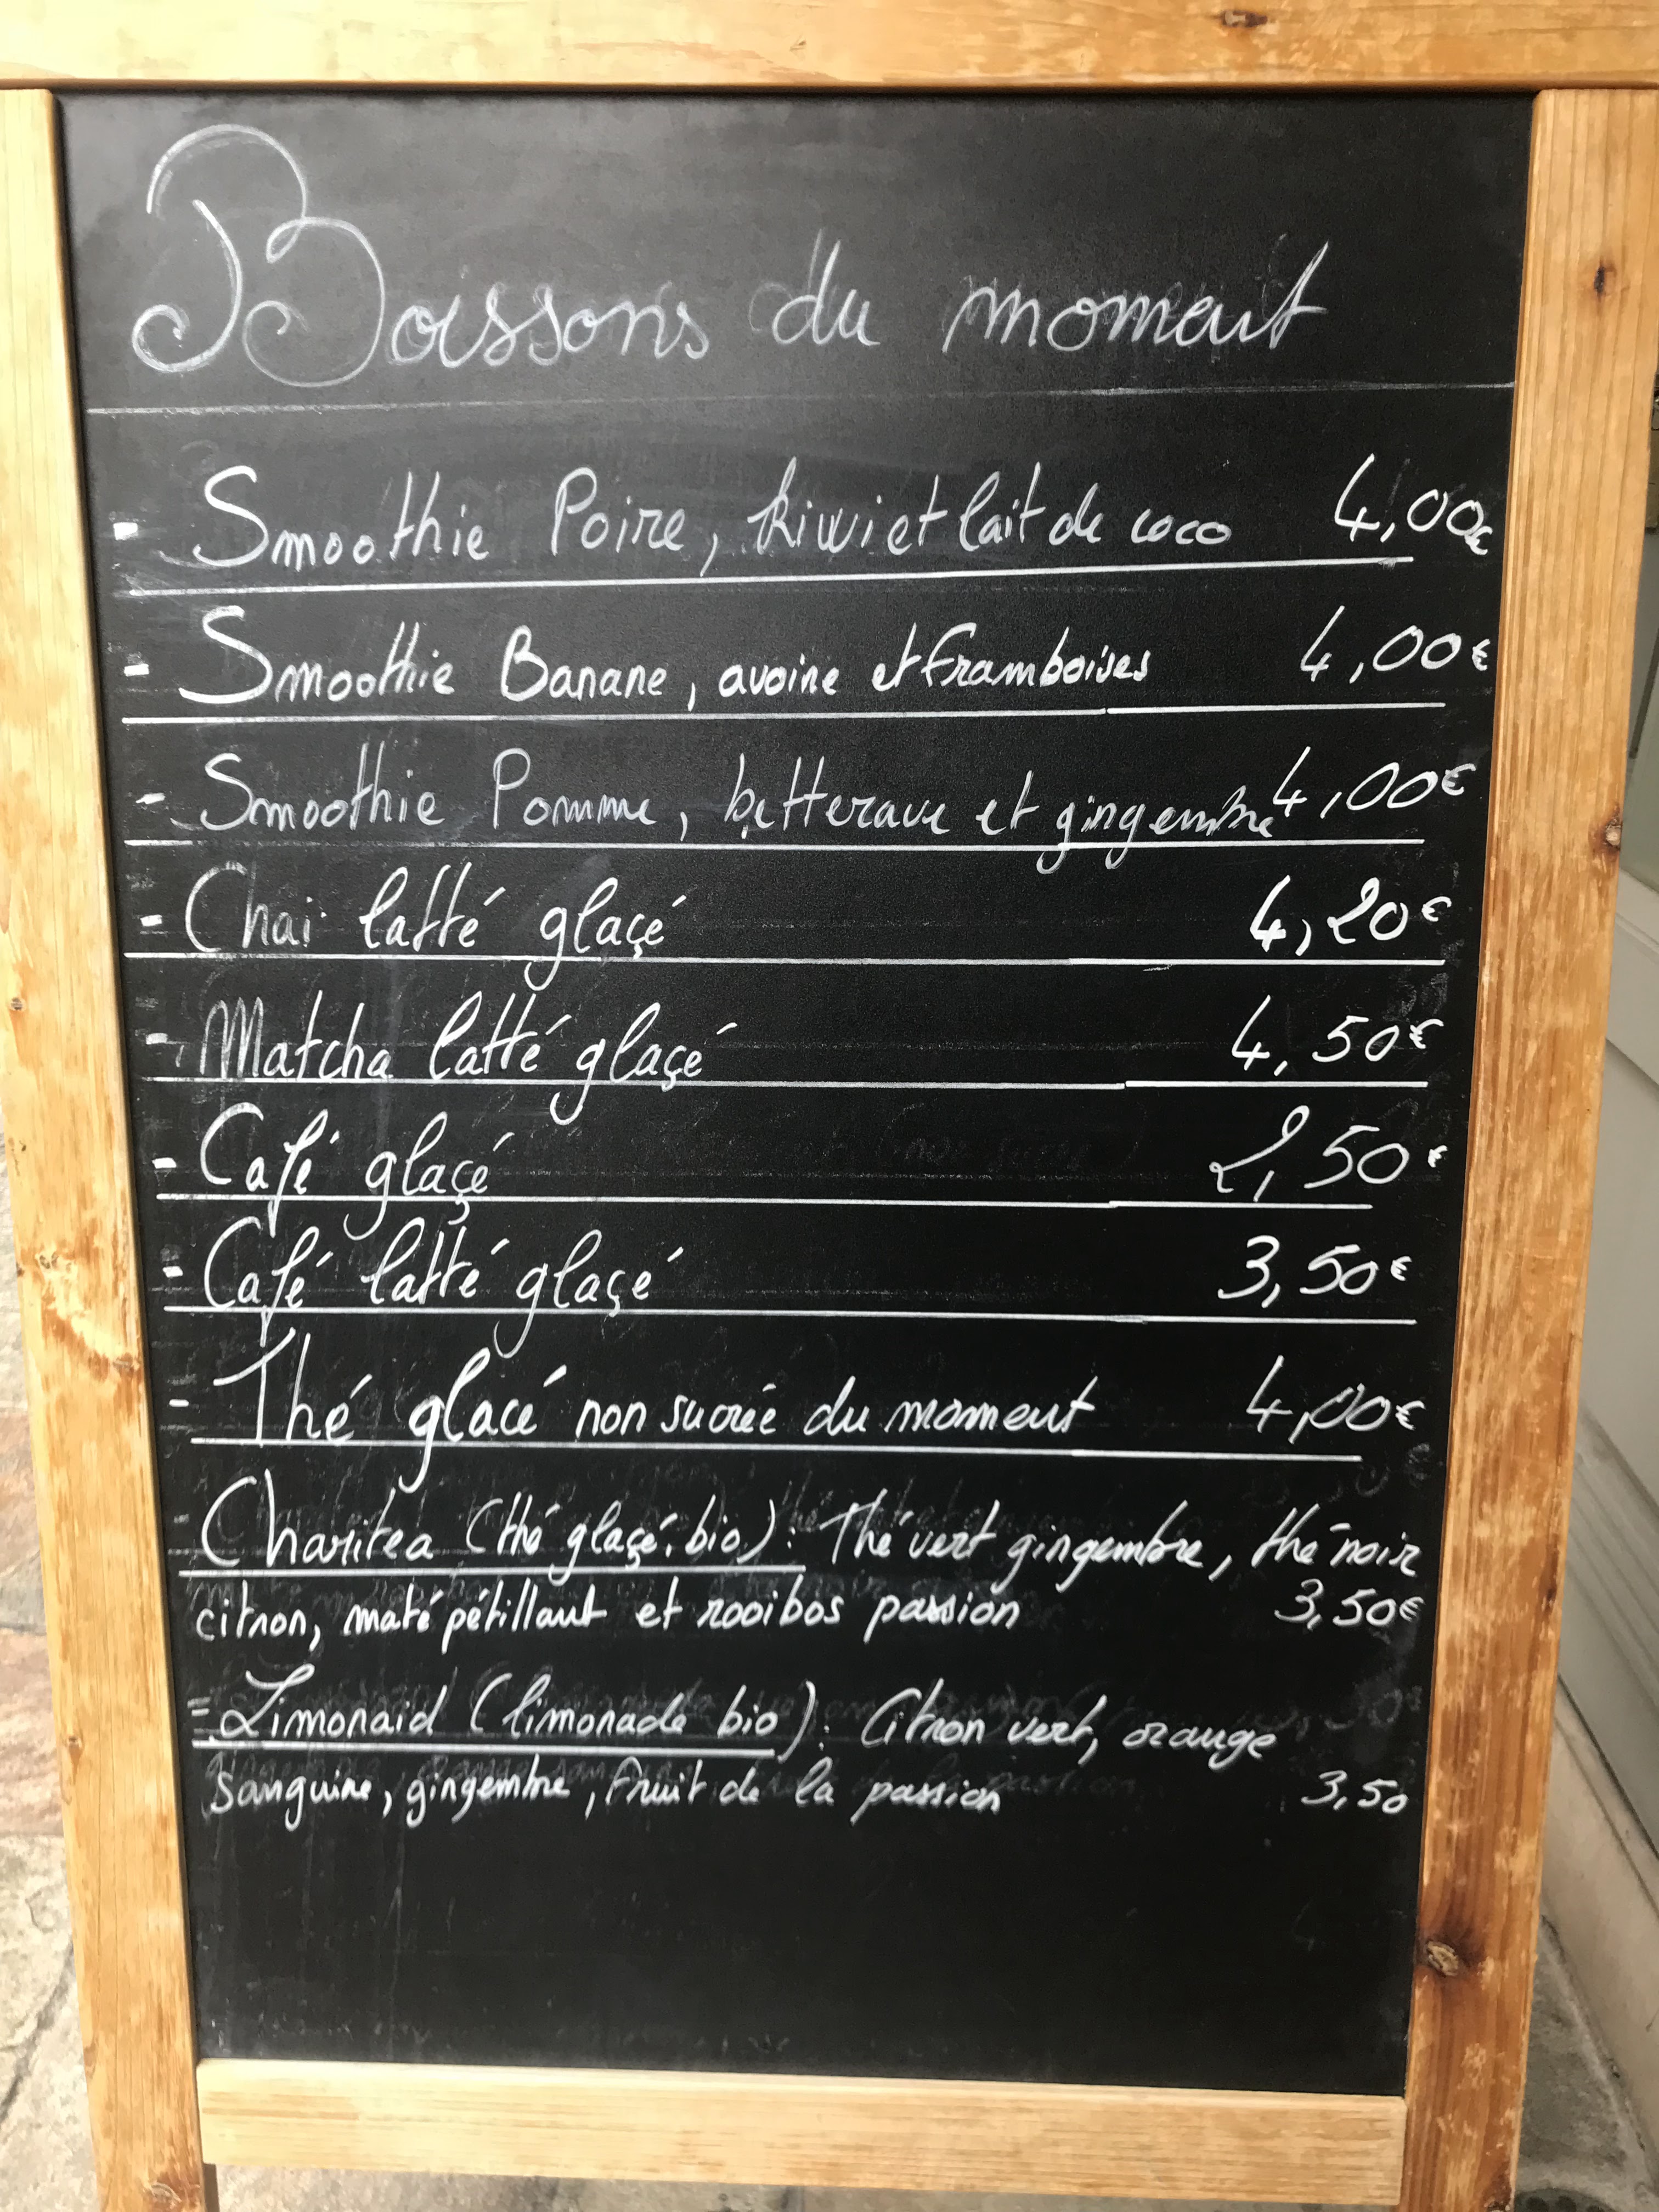 Boissons du moment
- Smoothie Poire, kiwi et lait de coco 4,00€
- Smoothie Banane, avoine et framboises 4,00€
- Smoothie Pomme, betterave et gingembre 4,00€
- Chai latté glaçé 4,20€
- Matcha latté glaçé 4,50€
- Café glaçé 2,50€
- Café latté glaçé 3,50€
- Thé glacé non sucrée du moment 4,00€
- Charitea (thé glaçé bio): Thé vert gingembre, thé noir
citron, maté pétillant et rooibos passion 3,50€
- Limonaid (limonade bio): Citron vert, orange
sanguine, gingembre, fruit de la passion 3,50